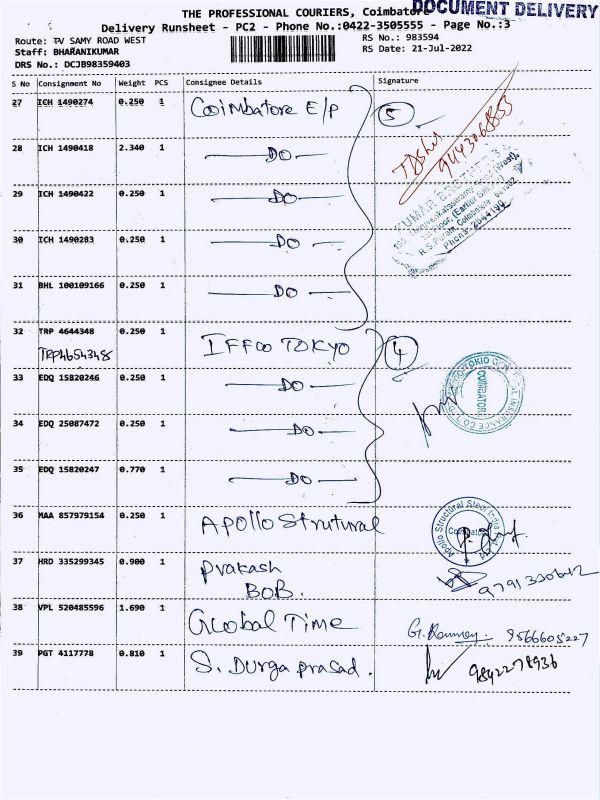 DOCUMENT DELIVERY
THE PROFESSIONAL COURIERS, Coimbatore
Delivery Runsheet - PC2 - Phone No.:0422-3505555 - Page No.:3
Route: TV SAMY ROAD WEST
RS No.: 983594
Staff: BHARANIKUMAR
RS Date: 21-Jul-2022
DRS No.: DCJB98359403
S No Consignment No Weight PCS Consignee Details Signature
27 ICH 1490274 0.250 1 Coimbatore E/P 5
28 ICH 1490418 2.340 1 DO
29 ICH 1490422 0.250 1 DO
30 ICH 1490283 0.250 1 DO
31 BHL 100109166 0.250 1 DO
KUMAR
R.S.Puram, Coimbatore
32 TRP 4644348 0.250 1 IFFCO TOKYO 4
TRP4654348
33 EDQ 15820246 0.250 1 DO
34 EDQ 25087472 0.250 1 DO
COIMBATORE
INSURANCE CO. LTD
35 EDQ 15820247 0.770 1 DO
36 MAA 857979154 0.250 1 Apollo Strutural
Apollo Structural Steel India
37 HRD 335299345 0.900 1 Prakash
BOB.
38 VPL 520485596 1.690 1 Global Time 9566605227
39 PGT 4117778 0.810 1 S. Durga prasad. 9842278936